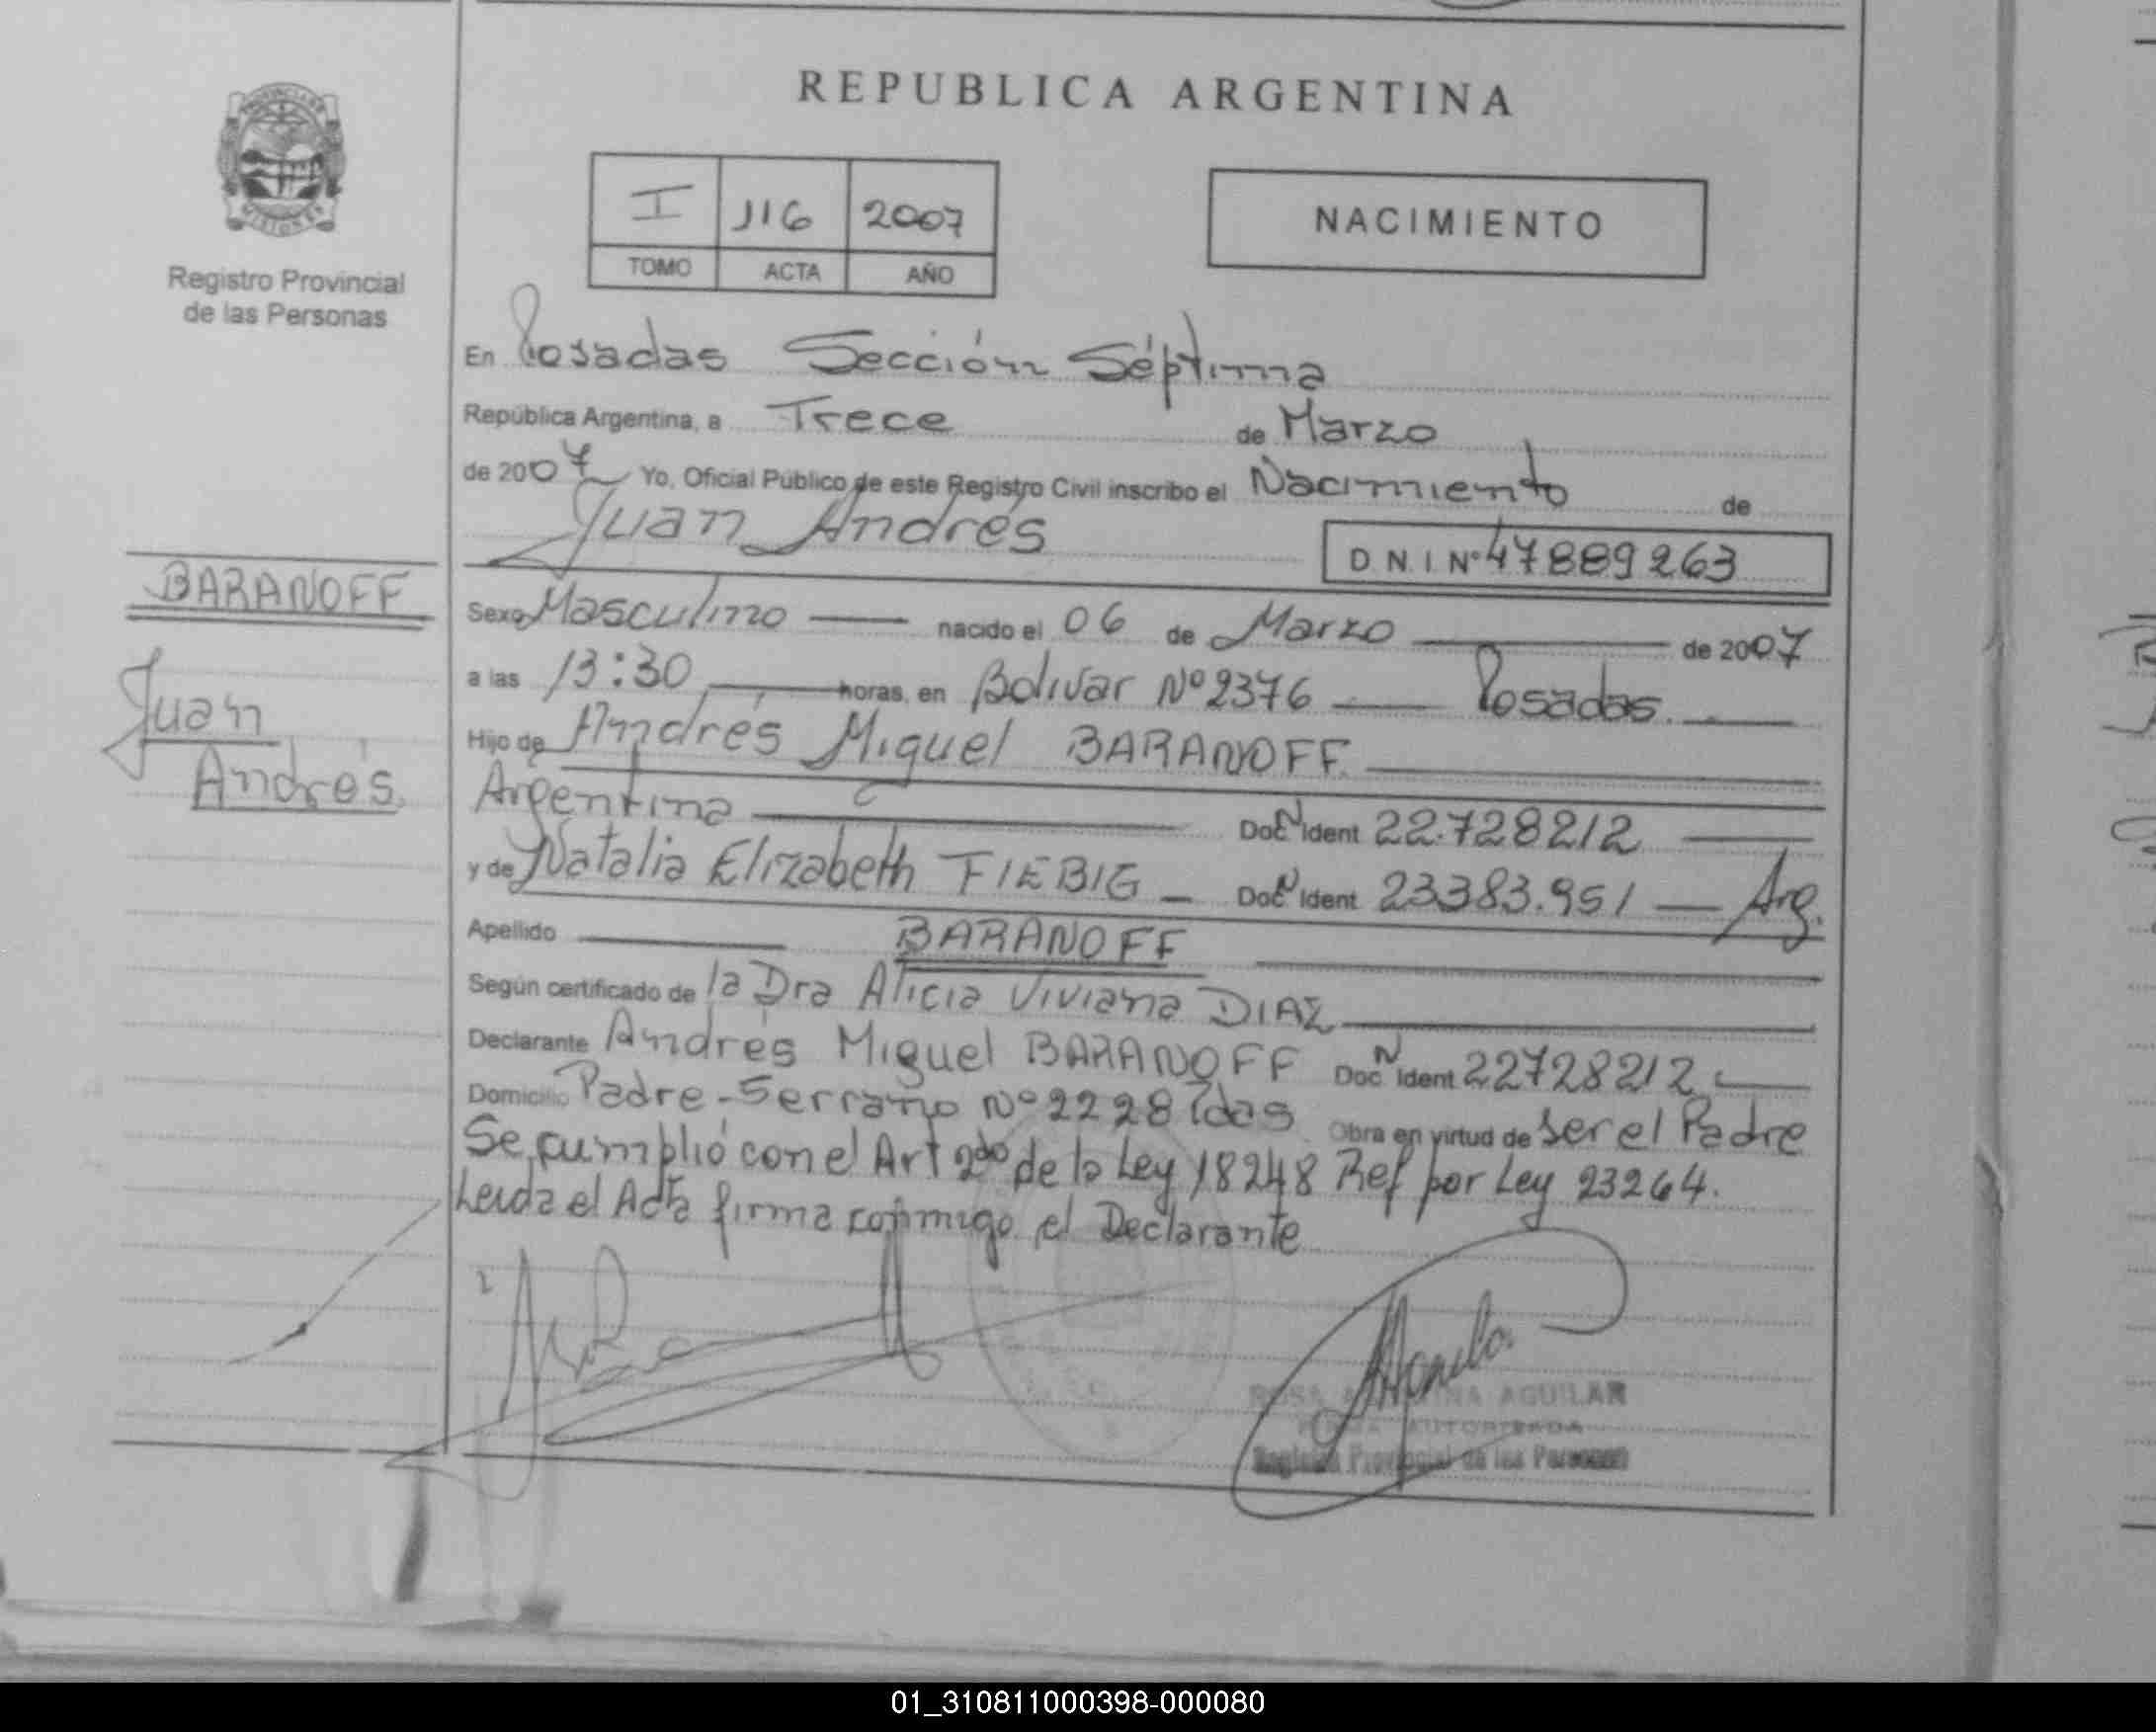 REPUBLICA ARGENTINA
PROVINCIA DE
MISIONES
Registro Provincial
de las Personas
I 116 2007
TOMO ACTA AÑO
NACIMIENTO
En Posadas Sección Séptima
República Argentina, a Trece de Marzo
de 2007 Yo, Oficial Público de este Registro Civil inscribo el Nacimiento de
Juan Andrés
D.N.I Nº 47889263
BARANOFF
Juan
Andrés
Sexo Masculino nacido el 06 de Marzo de 2007
a las 13:30 horas, en Bolivar Nº 2376 Posadas
Hijo de Andrés Miguel BARANOFF
Argentina Doc N Ident 22.728212
y de Natalia Elizabeth FIEBIG Doc N Ident 23383.951 Arg.
Apellido BARANOFF
Según certificado de la Dra Alicia Viviana DIAZ
Declarante Andrés Miguel BARANOFF Doc N Ident 22728212
Domicilio Padre - Serrano Nº 2228 Pdas Obra en virtud de ser el Padre
Se cumplió con el Art 2do de la Ley 18248 Ref por Ley 23264.
Leida el Acta firma conmigo el Declarante
ROSA AGUILAR
AUTORIZADA
Registro Provincial de las Personas
01_310811000398-000080